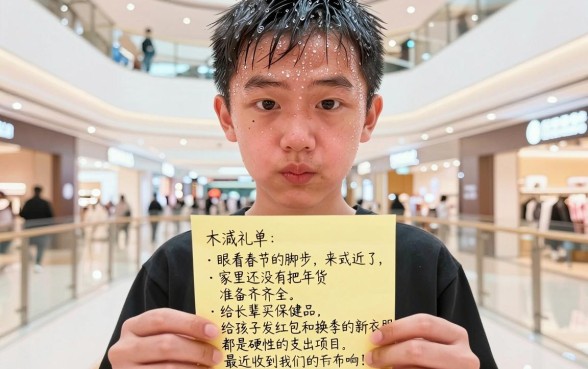 木减礼单：
· 眼看春节的脚步，来式近了，
· 家里还没有把年货
准备齐齐全。
· 给长辈买保健品，
给孩子发红包和换季的新衣服
都是硬性的支出项目。
最近收到我们的布响！